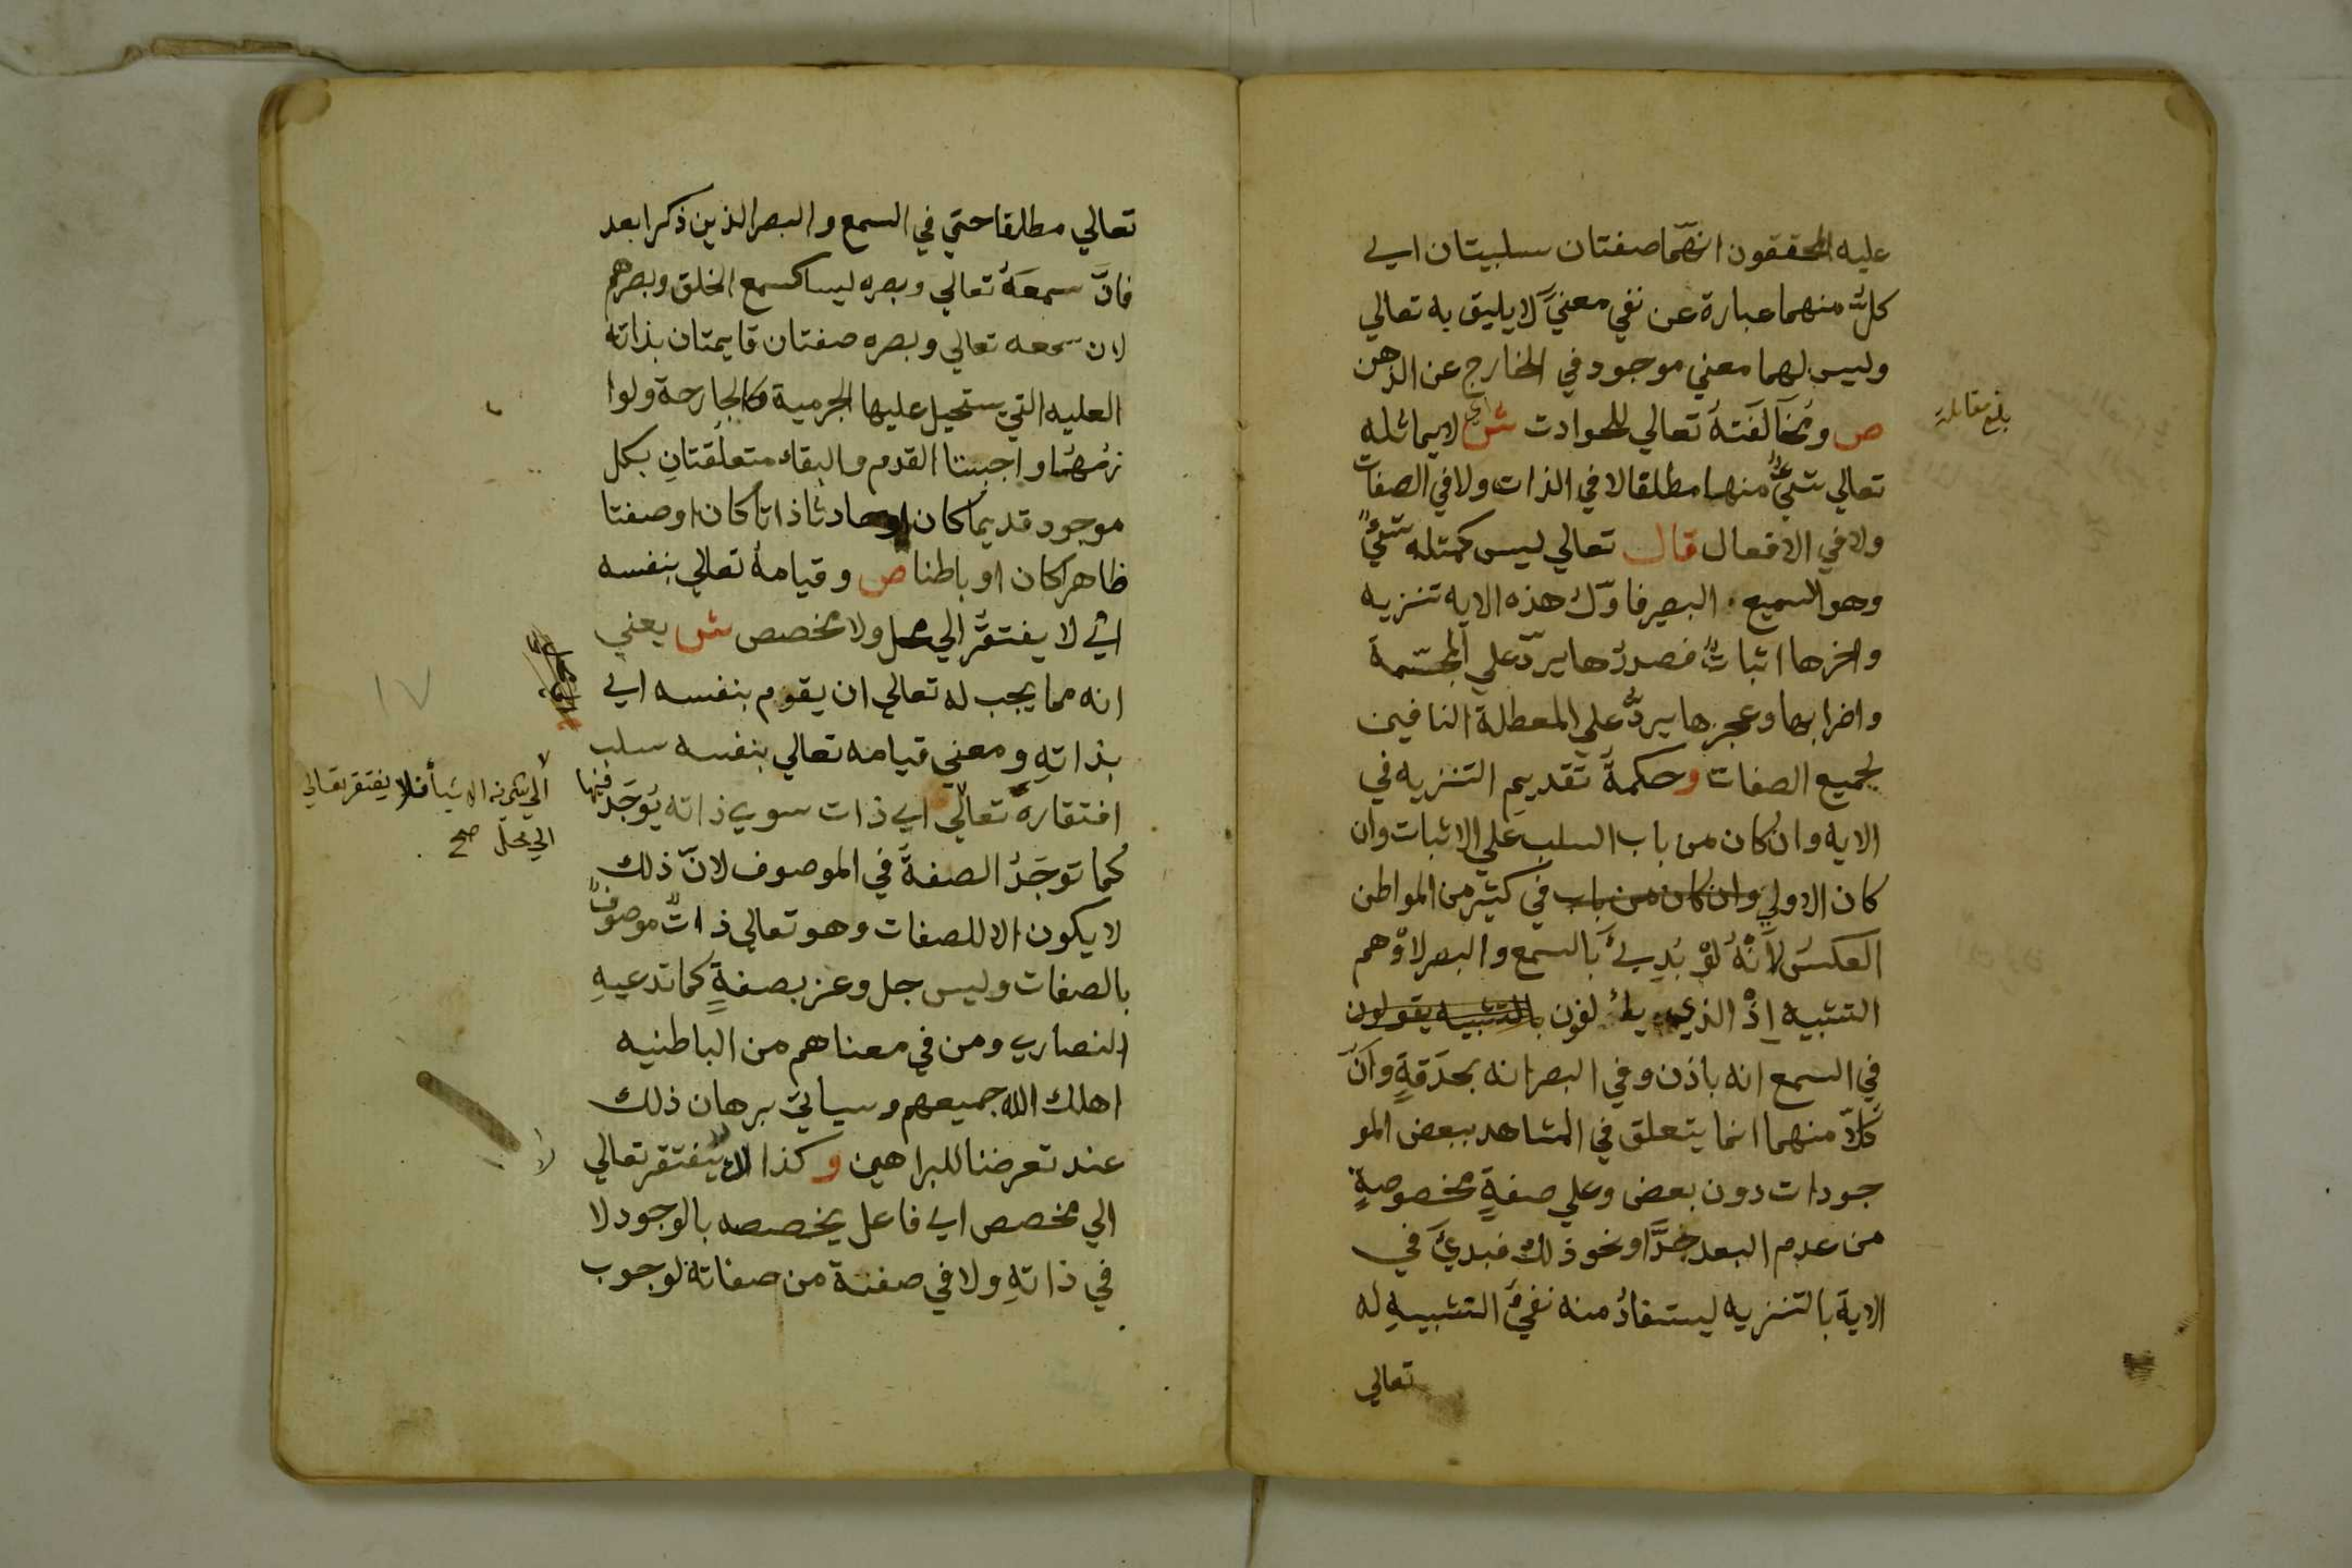 عليه المحققون انهما صفتان سلبيتان اي
كل منهما عبارة عن نفي معني لا يليق به تعالي
وليس لهما معني موجود في الخارج عن الذهن
ص ومخالفته تعالي للحوادث ش اي لا يماثله
بلغ مقابلة
تعالي شيء منها مطلقا لا في الذات ولا في الصفات
ولا في الافعال قال تعالي ليس كمثله شيء
وهو السميع البصير فاول هذه الايه تنزيه
واخرها اثبات فصدرها يرد علي المجسمة
واضرابها وعجزها يرد علي المعطلة النافين
لجميع الصفات وحكمة تقديم التنزيه في
الايه وان كان من باب السلب علي الاثبات وان
كان الاولي وان كان من باب في كثير من المواطن
العكس لانه لو بدي بالسمع والبصر لاوهم
التشبيه اذ الذي يالفون بالتشبيه يقولون
في السمع انه باذن وفي البصر انه بحدقة وان
كلا منهما انما يتعلق في المشاهد ببعض المو
جودات دون بعض وعلي صفة مخصوصة
من عدم البعد جدا ونحو ذلك فبدي في
الاية بالتنزيه ليستفاد منه نفي التشبيه له
تعالي
تعالي مطلقا حتي في السمع والبصر الذين ذكرا بعد
فان سمعه تعالي وبصره ليسا كسمع الخلق وبصرهم
لان سمعه تعالي وبصره صفتان قايمتان بذاته
العليه التي يستحيل عليها الجرمية والجارحة ولوا
زمهما واجبتا القدم والبقاء متعلقتان بكل
موجود قديما كان او حادثا ذاتا كان او صفتا
ظاهرا كان او باطنا ص وقيامه تعالي بنفسه
اي لا يفتقر الي محل ولا مخصص ش يعني
انه مما يجب له تعالي ان يقوم بنفسه اي
بذاته ومعني قيامه تعالي بنفسه سلب
افتقاره تعالي اي ذات سوي ذاته يوجد فيها
الي شي من الاشيا فلا يفتقر تعالي
الي محل صح
كما توجد الصفة في الموصوف لان ذلك
لا يكون الا للصفات وهو تعالي ذات موصوف
بالصفات وليس جل وعز بصفة كما تدعيه
النصاري ومن في معناهم من الباطنيه
اهلك الله جميعهم وسياتي برهان ذلك
عند تعرضنا للبراهين وكذا لا يفتقر تعالي
الي مخصص اي فاعل يخصصه بالوجود لا
في ذاته ولا في صفة من صفاته لوجوب
١٧